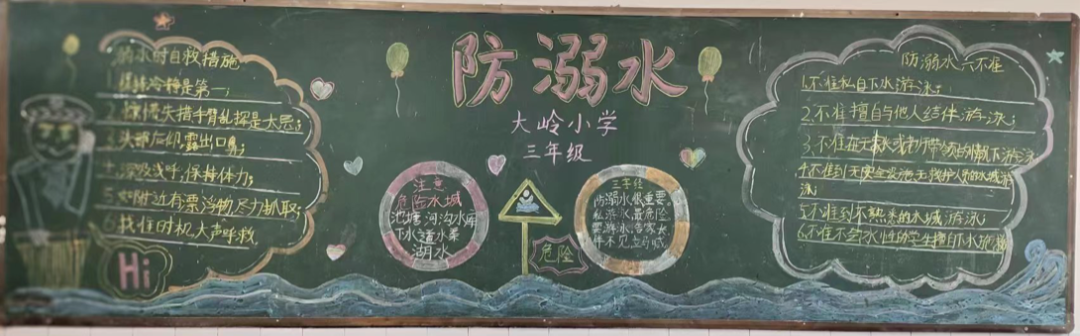 防溺水
大岭小学
三年级
溺水时自救措施
1.保持冷静是第一;
2.惊慌失措手臂乱挥是大忌;
3.头部后仰,露出口鼻;
4.深吸浅呼,保持体力;
5.如附近有漂浮物尽力抓取;
6.找准时机,大声呼救.
Hi
注意
危险水域
池塘 河沟水库
下水道水渠
湖水
危险
三字经
防溺水,很重要
私游泳,最危险
要游泳,告家长
伴不见,立时喊
防溺水六不准
1.不准私自下水游泳;
2.不准擅自与他人结伴游泳;
3.不准在无家长或教师带领的情况下游泳
4.不准到无安全设施,无救护人员的水域游
泳;
5.不准到不熟悉的水域游泳;
6.不准不会水性的学生擅自下水施救